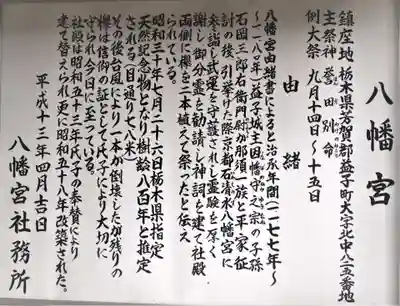 八幡宮
鎮座地 栃木県芳賀郡益子町大字北中八二五番地
主祭神 誉田別命
例大祭 九月十四日~十五日
由緒
八幡宮由緒書によると治承年間(一一七七年~
~一一八〇年)益子城主紀備守之宗の子孫
石岡三郎右衛門尉が那須一族と平家征
討の後、引挙げた際京都石清水八幡宮に
参詣し武運を守護され霊験を厚く
謝し御分霊を勧請し神祠を建て社殿
両側に欅を二本植えて祭ったと伝え
られている。
昭和三十年七月二十六日栃木県指定
天然記念物となり樹齢八百年と推定
される(目通り七・八米)
その後台風により一本が倒壊したが残りの
欅は信仰の証として氏子により大切に
守られ今日に至っている。
社殿は昭和五十三年氏子の奉賛により
建て替えられ更に昭和五十八年改築された。
平成十三年四月吉日
八幡宮社務所